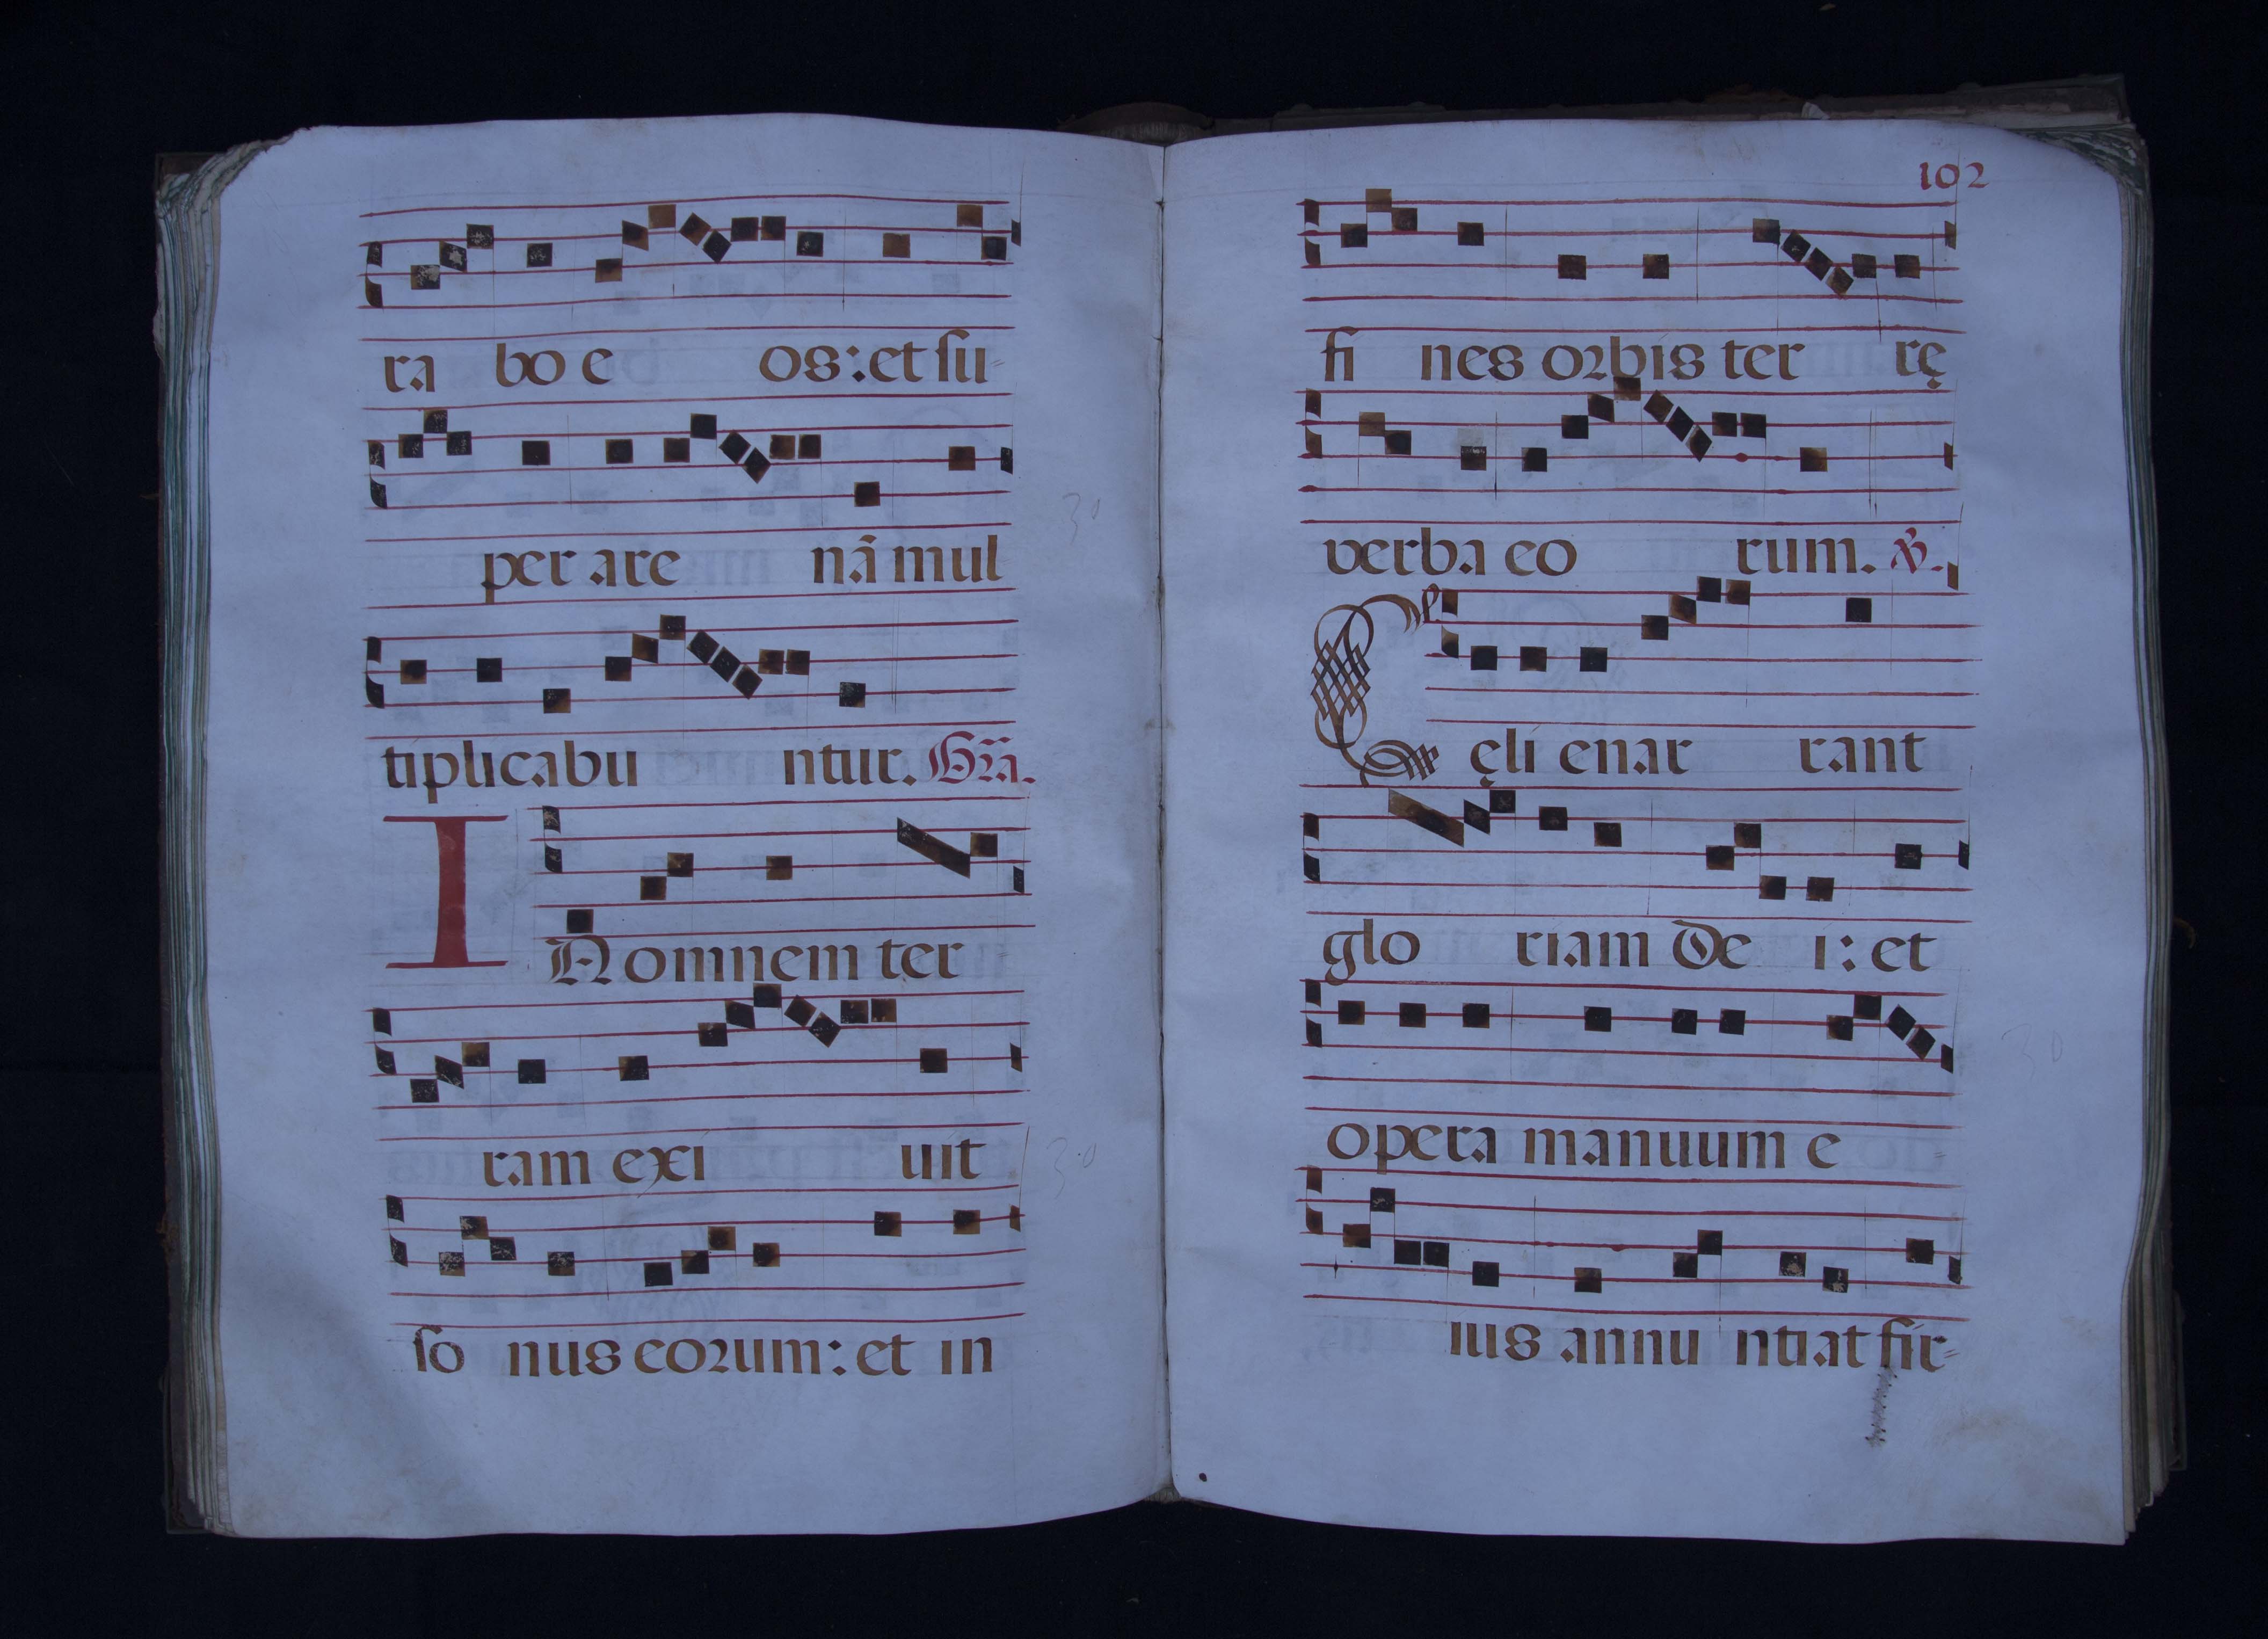 ra bo e os: et ſu=
per are nā mul
tiplicabu ntur. Gra.
IN omnem ter
ram exi uit
ſo nus eorum: et in
102
fi nes orbis ter rę
verba eo rum. ℣.
Cęli enar rant
glo riam De i: et
opera manuum e =
ius annu ntiat fir=